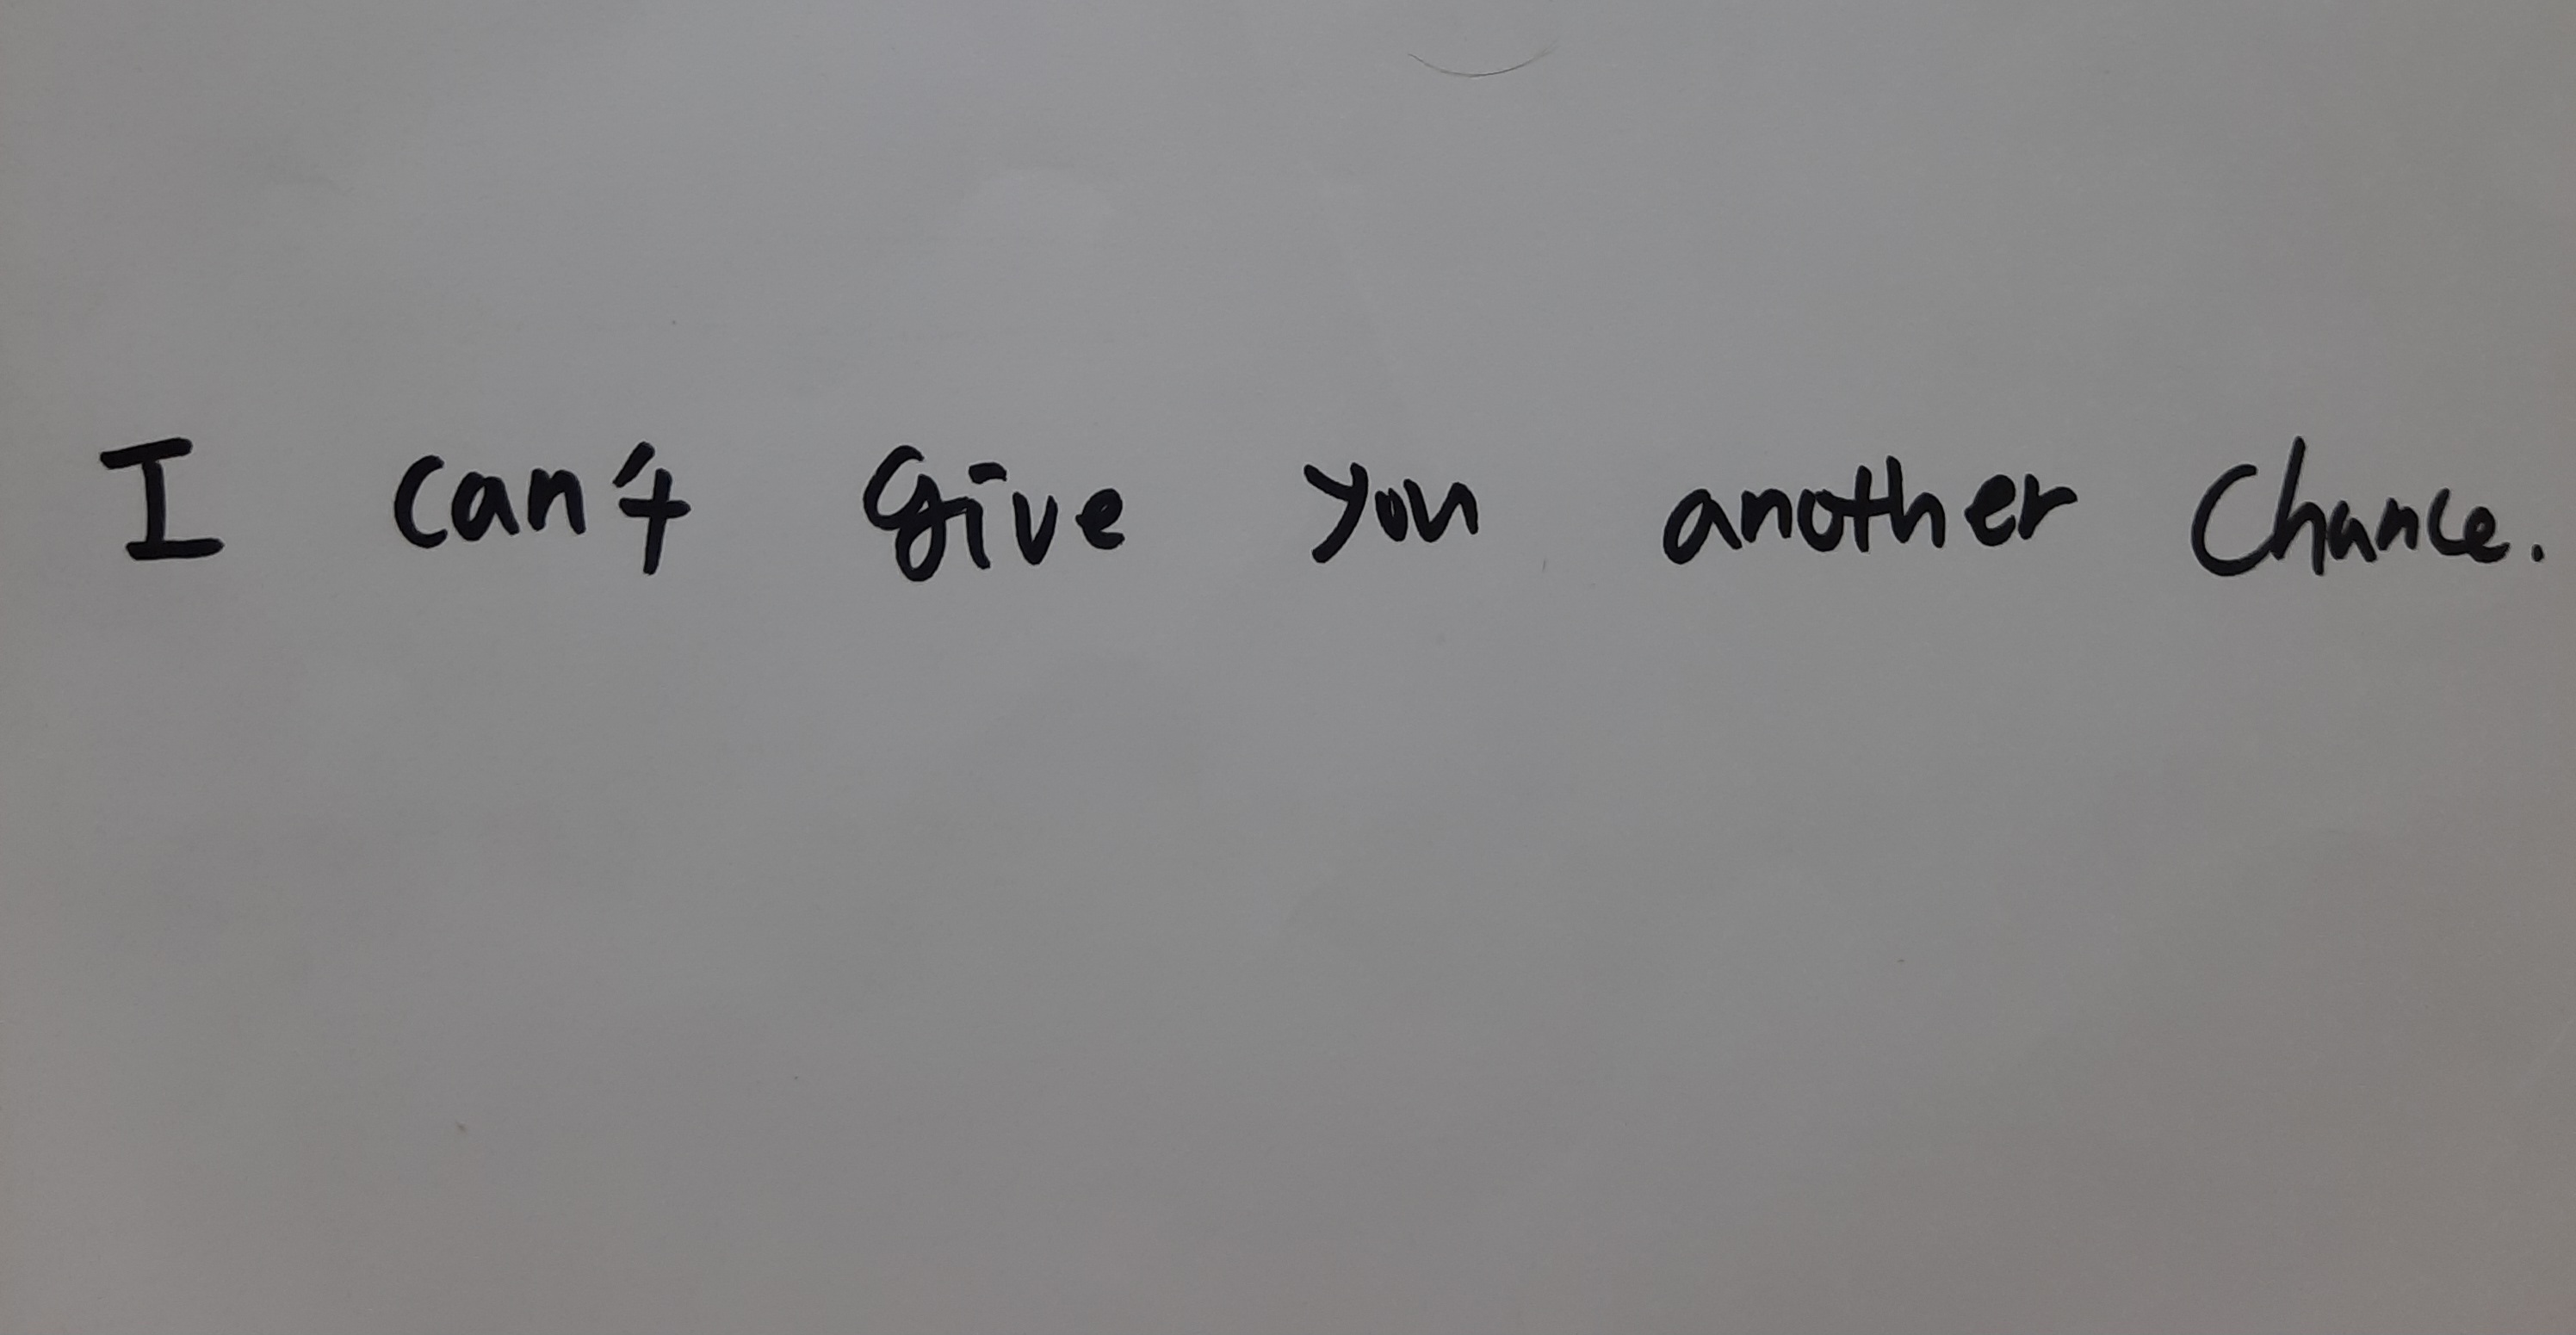 I can't give you another chance.